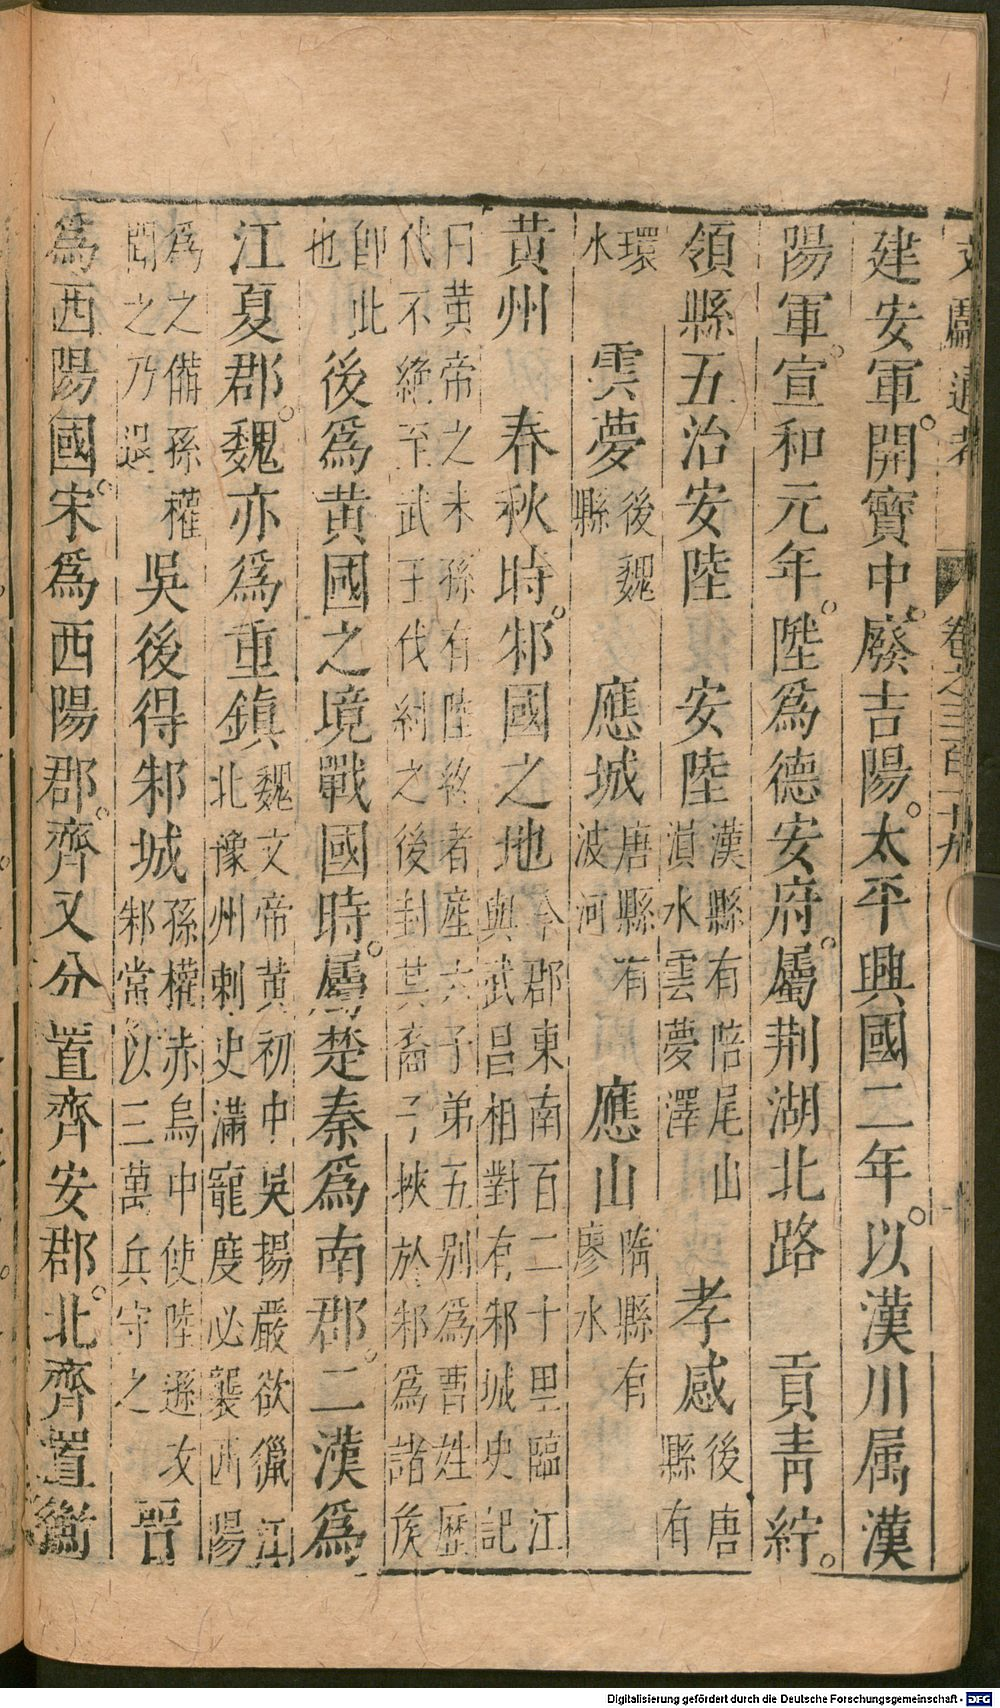 文獻通考 卷之三百一十九
建安軍。開寶中。廢吉陽。太平興國二年。以漢川属漢
陽軍。宣和元年。陞爲德安府。屬荆湖北路 貢青紵。
領縣五治安陸 安陸漢縣有陪尾山溳水雲夢澤 孝感後唐縣有
環水 雲夢後魏縣 應城唐縣有波河 應山隋縣有廖水
黄州 春秋時。邾國之地今郡東南百二十里臨江與武昌相對有邾城史記
曰黄帝之末孫有陸終者産六子弟五别爲曹姓歷代不絶至武王伐紂之後封其裔子挾於邾爲諸侯
卽此也 後爲黄國之境戰國時。屬楚秦爲南郡。二漢爲
江夏郡。魏亦爲重鎮魏文帝黄初中吳揚嚴欲獵江北豫州刺史滿寵度必襲西陽
爲之備孫權聞之乃退 吳後得邾城孫權赤烏中使陸遜攻邾常以三萬兵守之 晉
爲西陽國。宋爲西陽郡。齊又分置齊安郡。北齊置衡
Digitalisierung gefördert durch die Deutsche Forschungsgemeinschaft - DFG